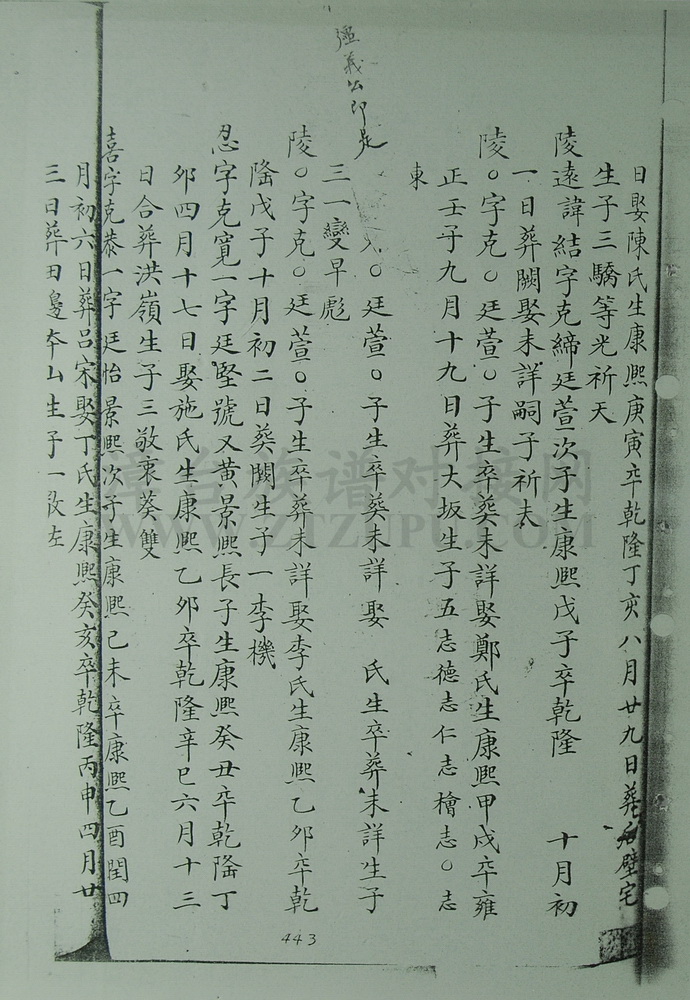 日娶陳氏生康熙庚寅卒乾隆丁亥八月廿九日葬壁宅
生子三驕等光祈天
陵遠諱結字克締廷萱次子生康熙戊子卒乾隆 十月初
一日葬闕娶未詳嗣子祈夫
陵○字克○廷萱○子生卒葬未詳娶鄭氏生康熙甲戌卒雍
正壬子九月十九日葬大坂生子五志德志仁志檜志○志
東
○廷萱○子生卒葬未詳娶 氏生卒葬未詳生子
三一變早彪
陵○字克○廷萱○子生卒葬未詳娶李氏生康熙乙卯卒乾
隆戊子十月初二日葬闕生子一李機
忍字克寬一字廷堅號又黃景熙長子生康熙癸丑卒乾隆丁
卯四月十七日娶施氏生康熙乙卯卒乾隆辛巳六月十三
日合葬洪嶺生子三敬衷葵雙
喜字克恭一字廷怡景熙次子生康熙己未卒康熙乙酉閏四
月初六日葬呂宋娶丁氏生康熙癸亥卒乾隆丙申四月廿
三日葬田邊本山生子一啟左
義公即是
443
漳台族谱对接网
WWW.ZTZUPU.COM